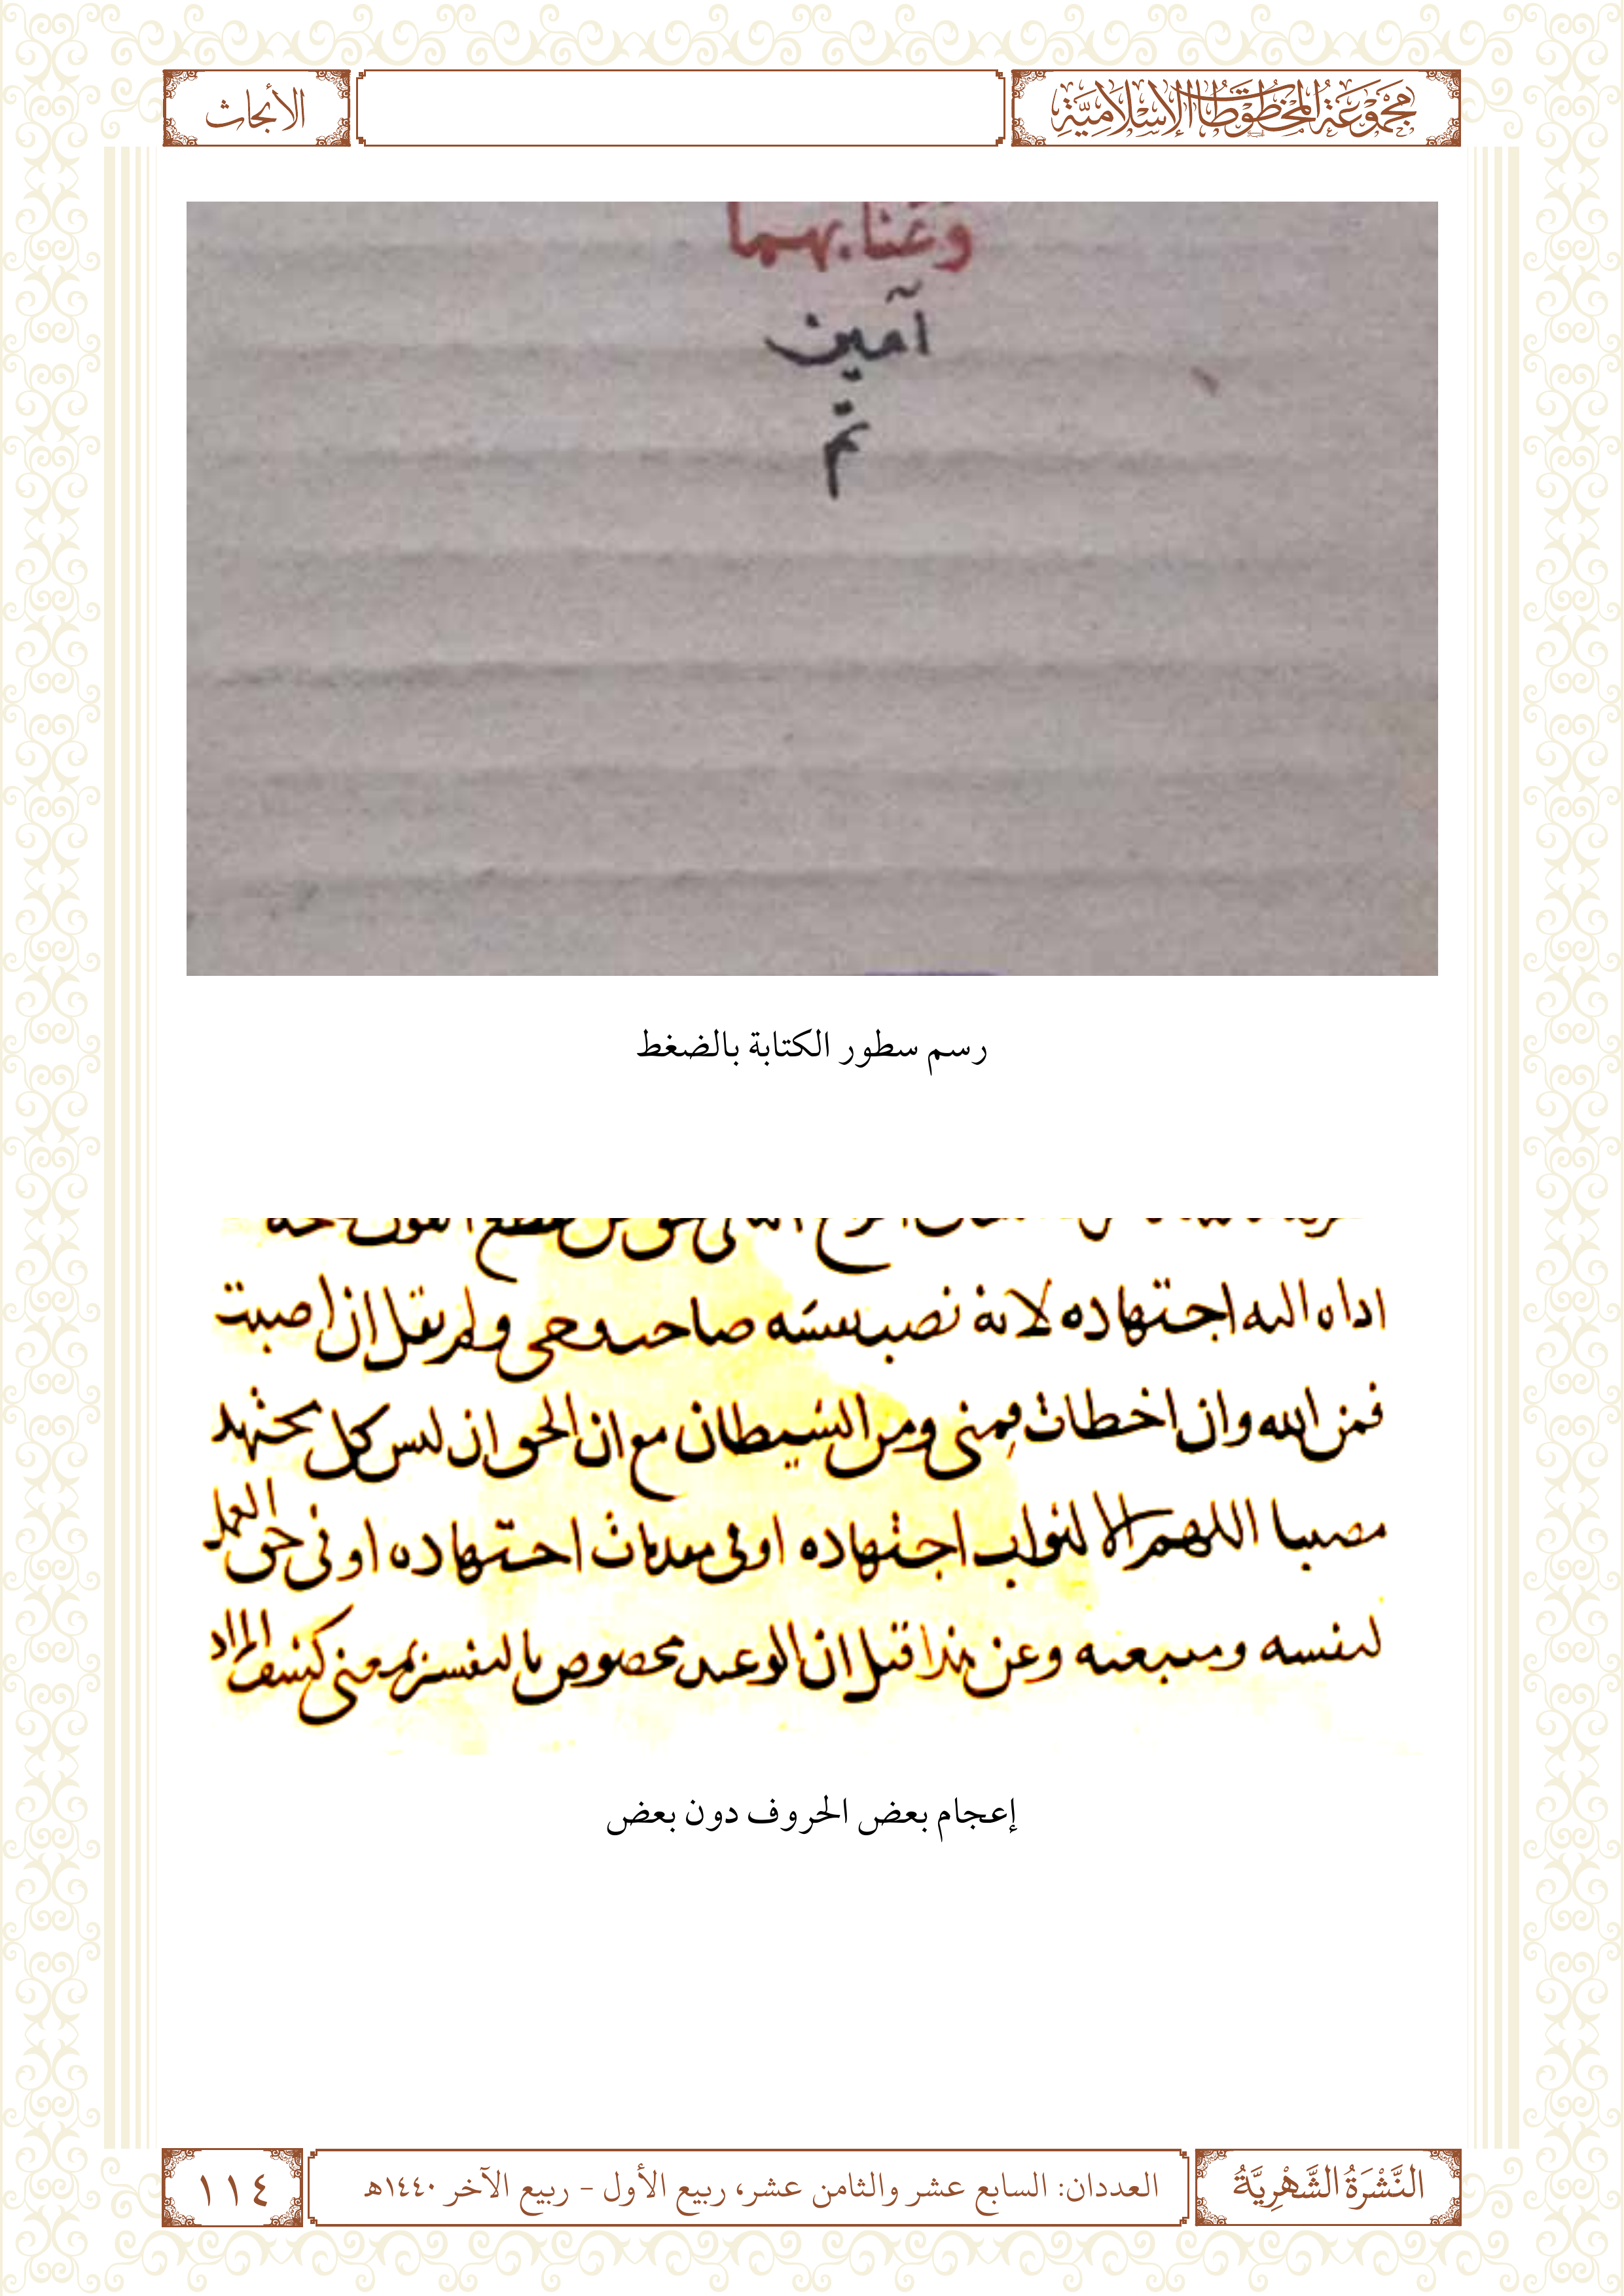 مَجْمُوعَةُ المَخْطُوطَاتِ الإِسْلَامِيَّةِ
الأبحاث
وعنا بهما
آمين
تم
رسم سطور الكتابة بالضغط
اداه اليه اجتهاده لانه نصب نفسه صاحب وحى ولم يقل ان اصبت
فمن الله وان اخطات فمنى ومن الشيطان مع ان الحق ان ليس كل مجتهد
مصيبا اللهم الا لثواب اجتهاده او فى مقدمات اجتهاده او فى حق العمل
لنفسه ومتبعيه وعن هذا قيل ان الوعيد مخصوص بالتفسير بمعنى كشف المراد
إعجام بعض الحروف دون بعض
النَّشْرَةُ الشَّهْرِيَّةُ
العددان: السابع عشر والثامن عشر، ربيع الأول - ربيع الآخر ١٤٤٠هـ
١١٤